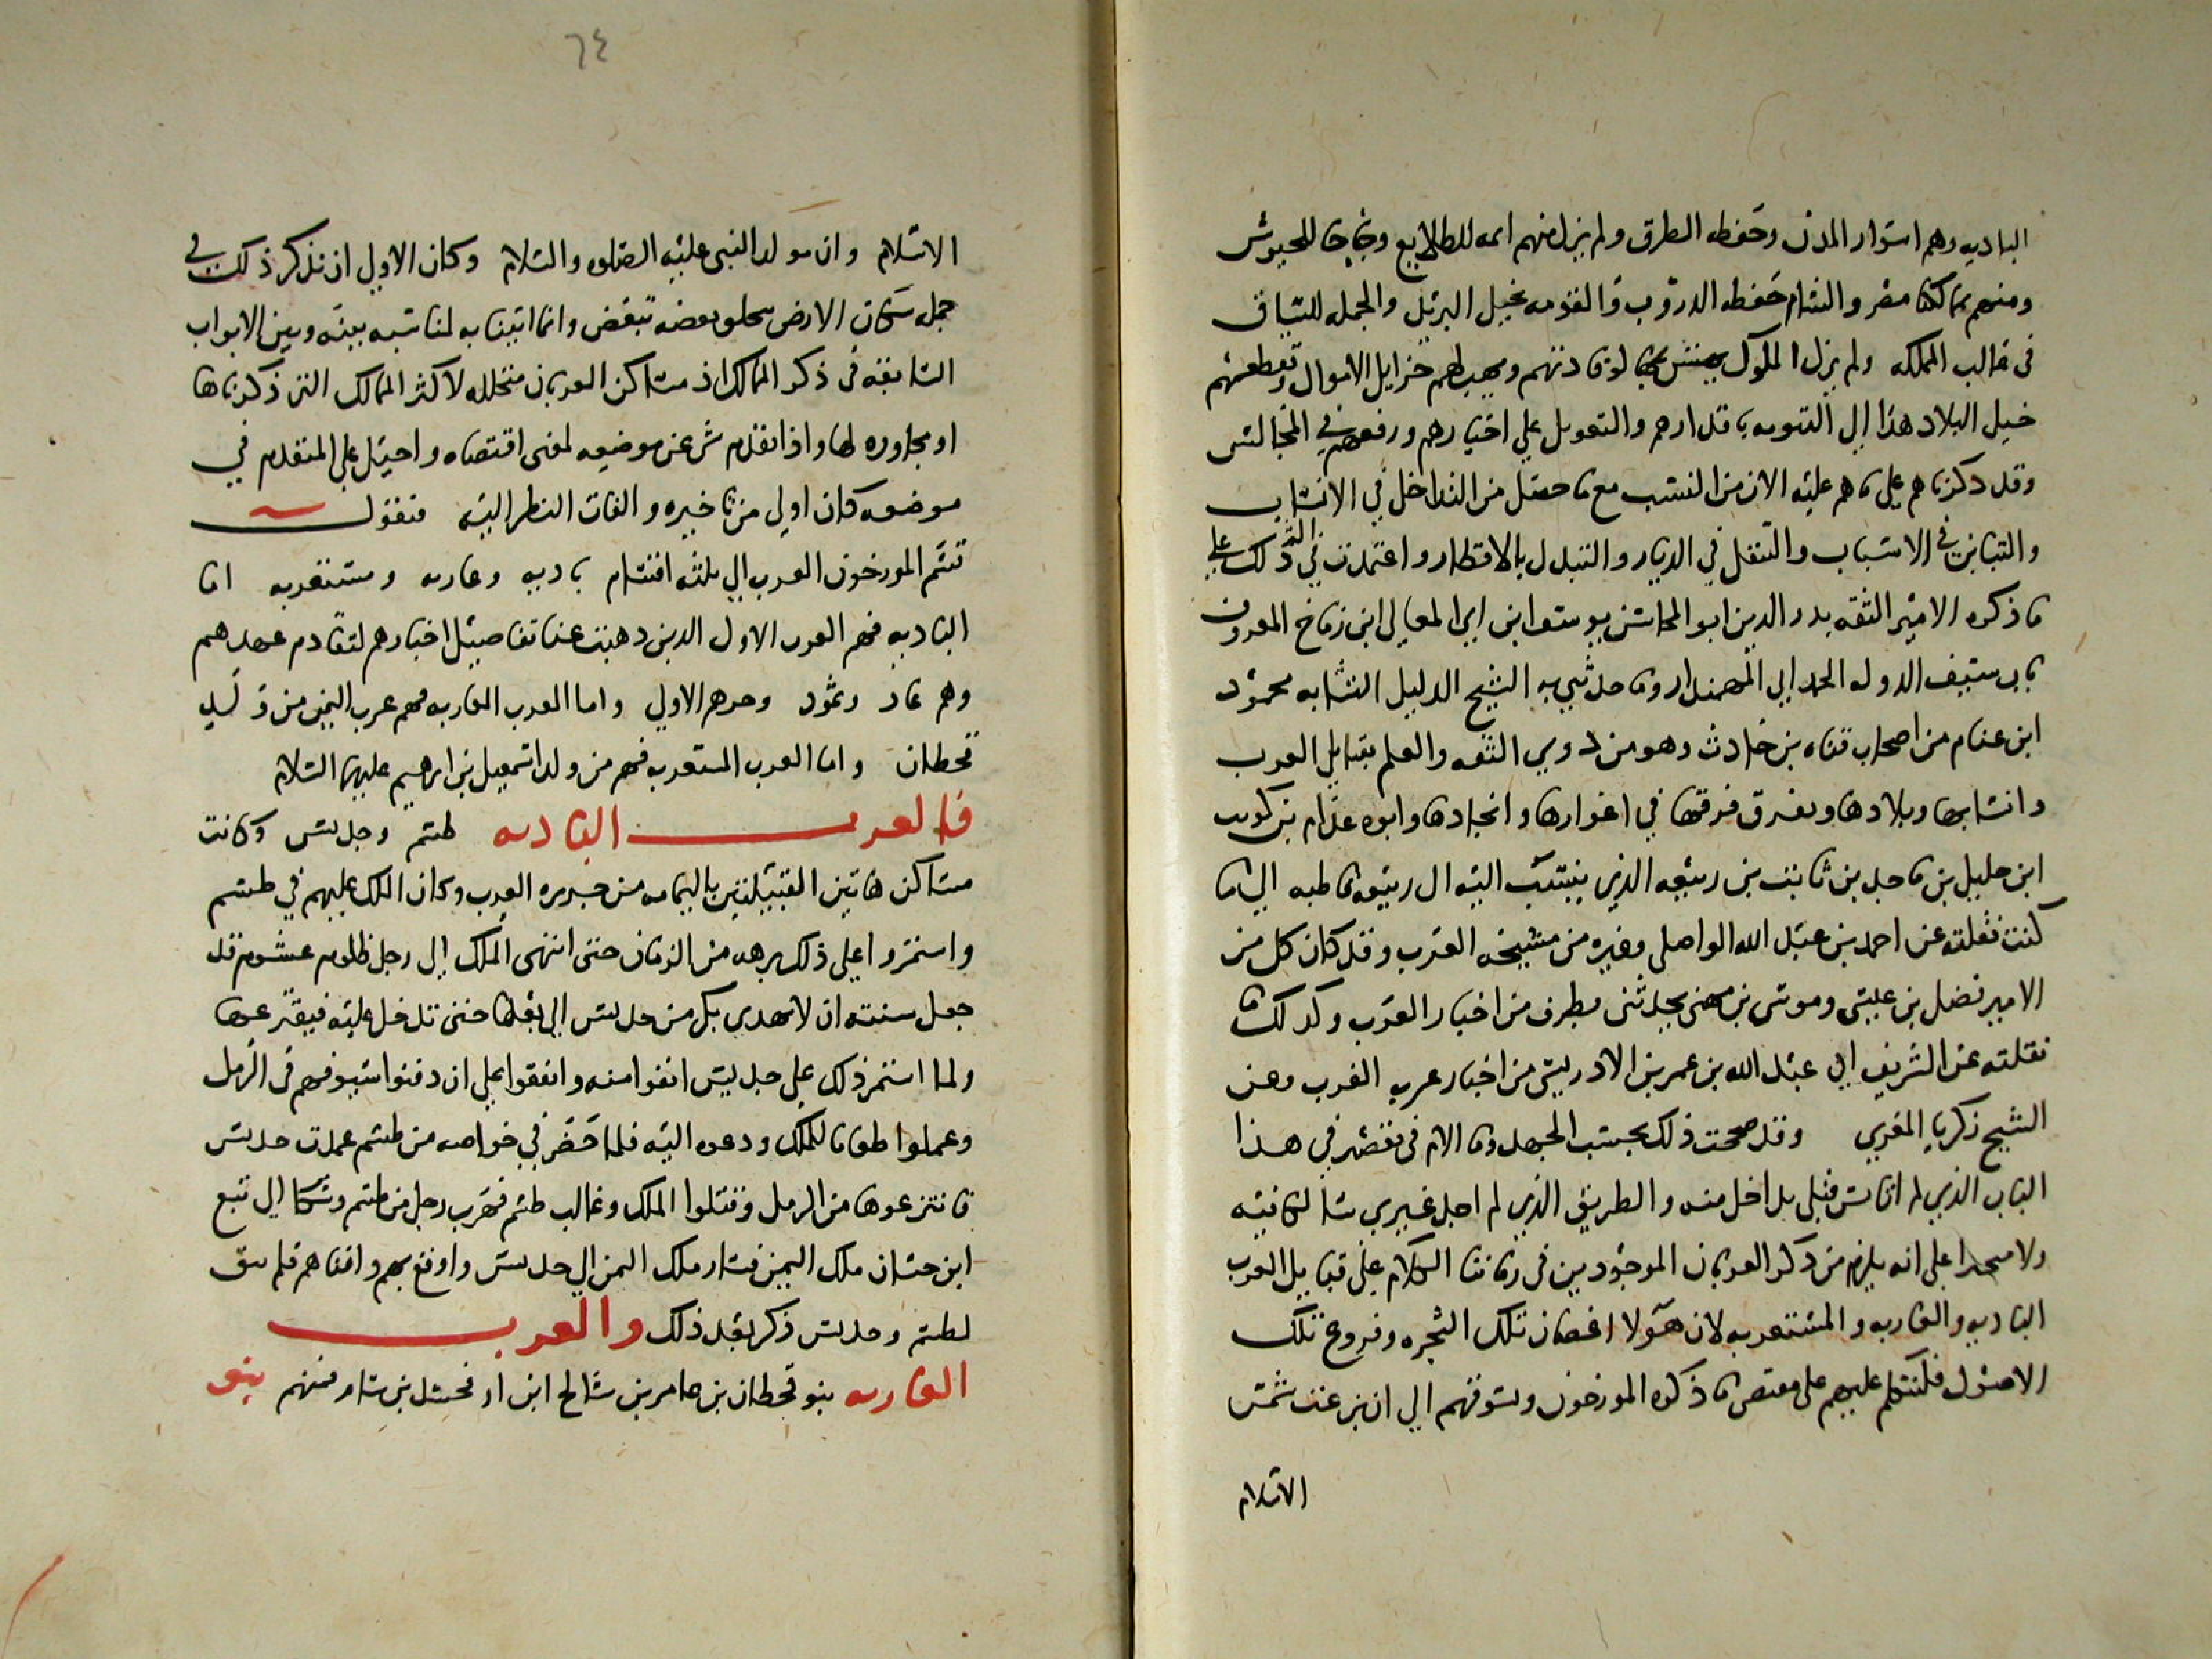 الباديه وهم اسوار المدن وحفظه الطرق ولم يزل منهم ايمه للطلايع ونجاجا للجيوش
ومنهم بمالكنا مصر والشام حفظه الدروب والقومه بخيل البريد والجمله للسباق
في غالب المملكه ولم يزل الملوك لوفادتهم ويهب لهم جزايل الاموال وتقطعهم
خيل البلاد هذا الي التنويه باقدارهم والتعويل علي اختيارهم ورفعهم في المجالس
وقد ذكرناهم علي ما هم عليه الان من النسب مع ما حصل من التداخل في الانساب
والتباين في الاسباب والتنقل في الديار والتبدل بالاقطار واعتمدت في ذلك علي
ما ذكره الامير الثقه بدر الدين ابو المحاسن يوسف ابن ابي المعالي ابن زماخ المعروف
بابن سيف الدوله الحمداني المهمندار وما حدثني به الشيخ الدليل النسابه محمود
ابن عنام من اصحاب قناه بن حارث وهو من ذوي الثقه والعلم بقبايل العرب
وانسابها وبلادها وتفرق فرقها في اغوارها وانجادها وابوه عنام بن كويب
ابن خليل بن ماجد بن ثابت بن ربيعه الذي ينتسب اليه ال ربيعه قاطبه الي ما
كنت نقلته عن احمد بن عبد الله الواصلي وغيره من مشيخه العرب وقد كان كل من
الامير فضل بن عيسي وموسي بن مهنى يحدثنى بطرف من اخبار العرب وكذلك ما
نقلته عن الشريف ابي عبد الله بن عمر بن الادريسي من اخبار عرب الغرب وعن
الشيخ زكريا المغربي وقد صححت ذلك بحسب الجهد وما الام في تقصير في هذا
الباب الذي لم اناس قبل بداخل منه والطريق الذي لم اجد غيري سالكا فيه
ولا علي انه يلزم من ذكر العربان الموجودين في زماننا الكلام علي قبايل العرب
الباديه والعاربه والمستعربه لان هولا اغصان تلك الشجره وفروع تلك
الاصول فلنتكلم عليهم علي مقتضي ما ذكره المورخون ونسوقهم الي ان بزغت شمس
الاسلام
٦٤
الاسلام وان مولد النبي عليه الصلوه والسلام وكان الاولي ان نذكر ذلك في
جمل سكان الارض بعضه ببعض وانما اتينا به لمناسبه بينه وبين الابواب
السابقه في ذكر الممالك اذ مساكن العربان متخلله لاكثر الممالك التي ذكرناها
او مجاوره لها واذا تقدم شي عن موضعه لمعنى اقتضاه واحيل علي المتقدم في
موضعه كان اولي من تاخيره والفات النظر اليه فنقول
قسم المورخون العرب الي ثلثه اقسام باديه وعاربه ومستعربه اما
الباديه فهم العرب الاول الذين ذهبت عنا تفاصيل اخبارهم لتقادم عهدهم
وهم عاد وثمود وجرهم الاولي واما العرب العاربه فهم عرب اليمن من ولد
قحطان واما العرب المستعربه فهم من ولد اسمعيل بن ابرهيم عليهما السلام
فالعرب الباديه طسم وجديس وكانت
مساكن هاتين القبيلتين باليمامه من جزيره العرب وكان الملك عليهم في طسم
واستمروا علي ذلك برهه من الزمان حتى انتهى الملك الي رجل ظلوم غشوم قد
جعل سنته ان لا تهدي بكر من جديس الي بعلها حتى تدخل عليه فيفترعها
ولما استمر ذلك علي جديس انفوا منه واتفقوا علي ان دفنوا سيوفهم في الرمل
وعملوا طعاما للملك ودعوه اليه فلما حضر في خواصه من طسم عمدت جديس
فانتزعوها من الرمل وقتلوا الملك وغالب طسم فهرب رجل من طسم وشكا الي تبع
ابن حسان ملك اليمن فسار ملك اليمن الي جديس واوقع بهم وافناهم فلم يبق
لطسم وجديس ذكر بعد ذلك والعرب
العاربه بنو قحطان بن عامر بن شالخ ابن ارفخشد بن سام فمنهم بنو